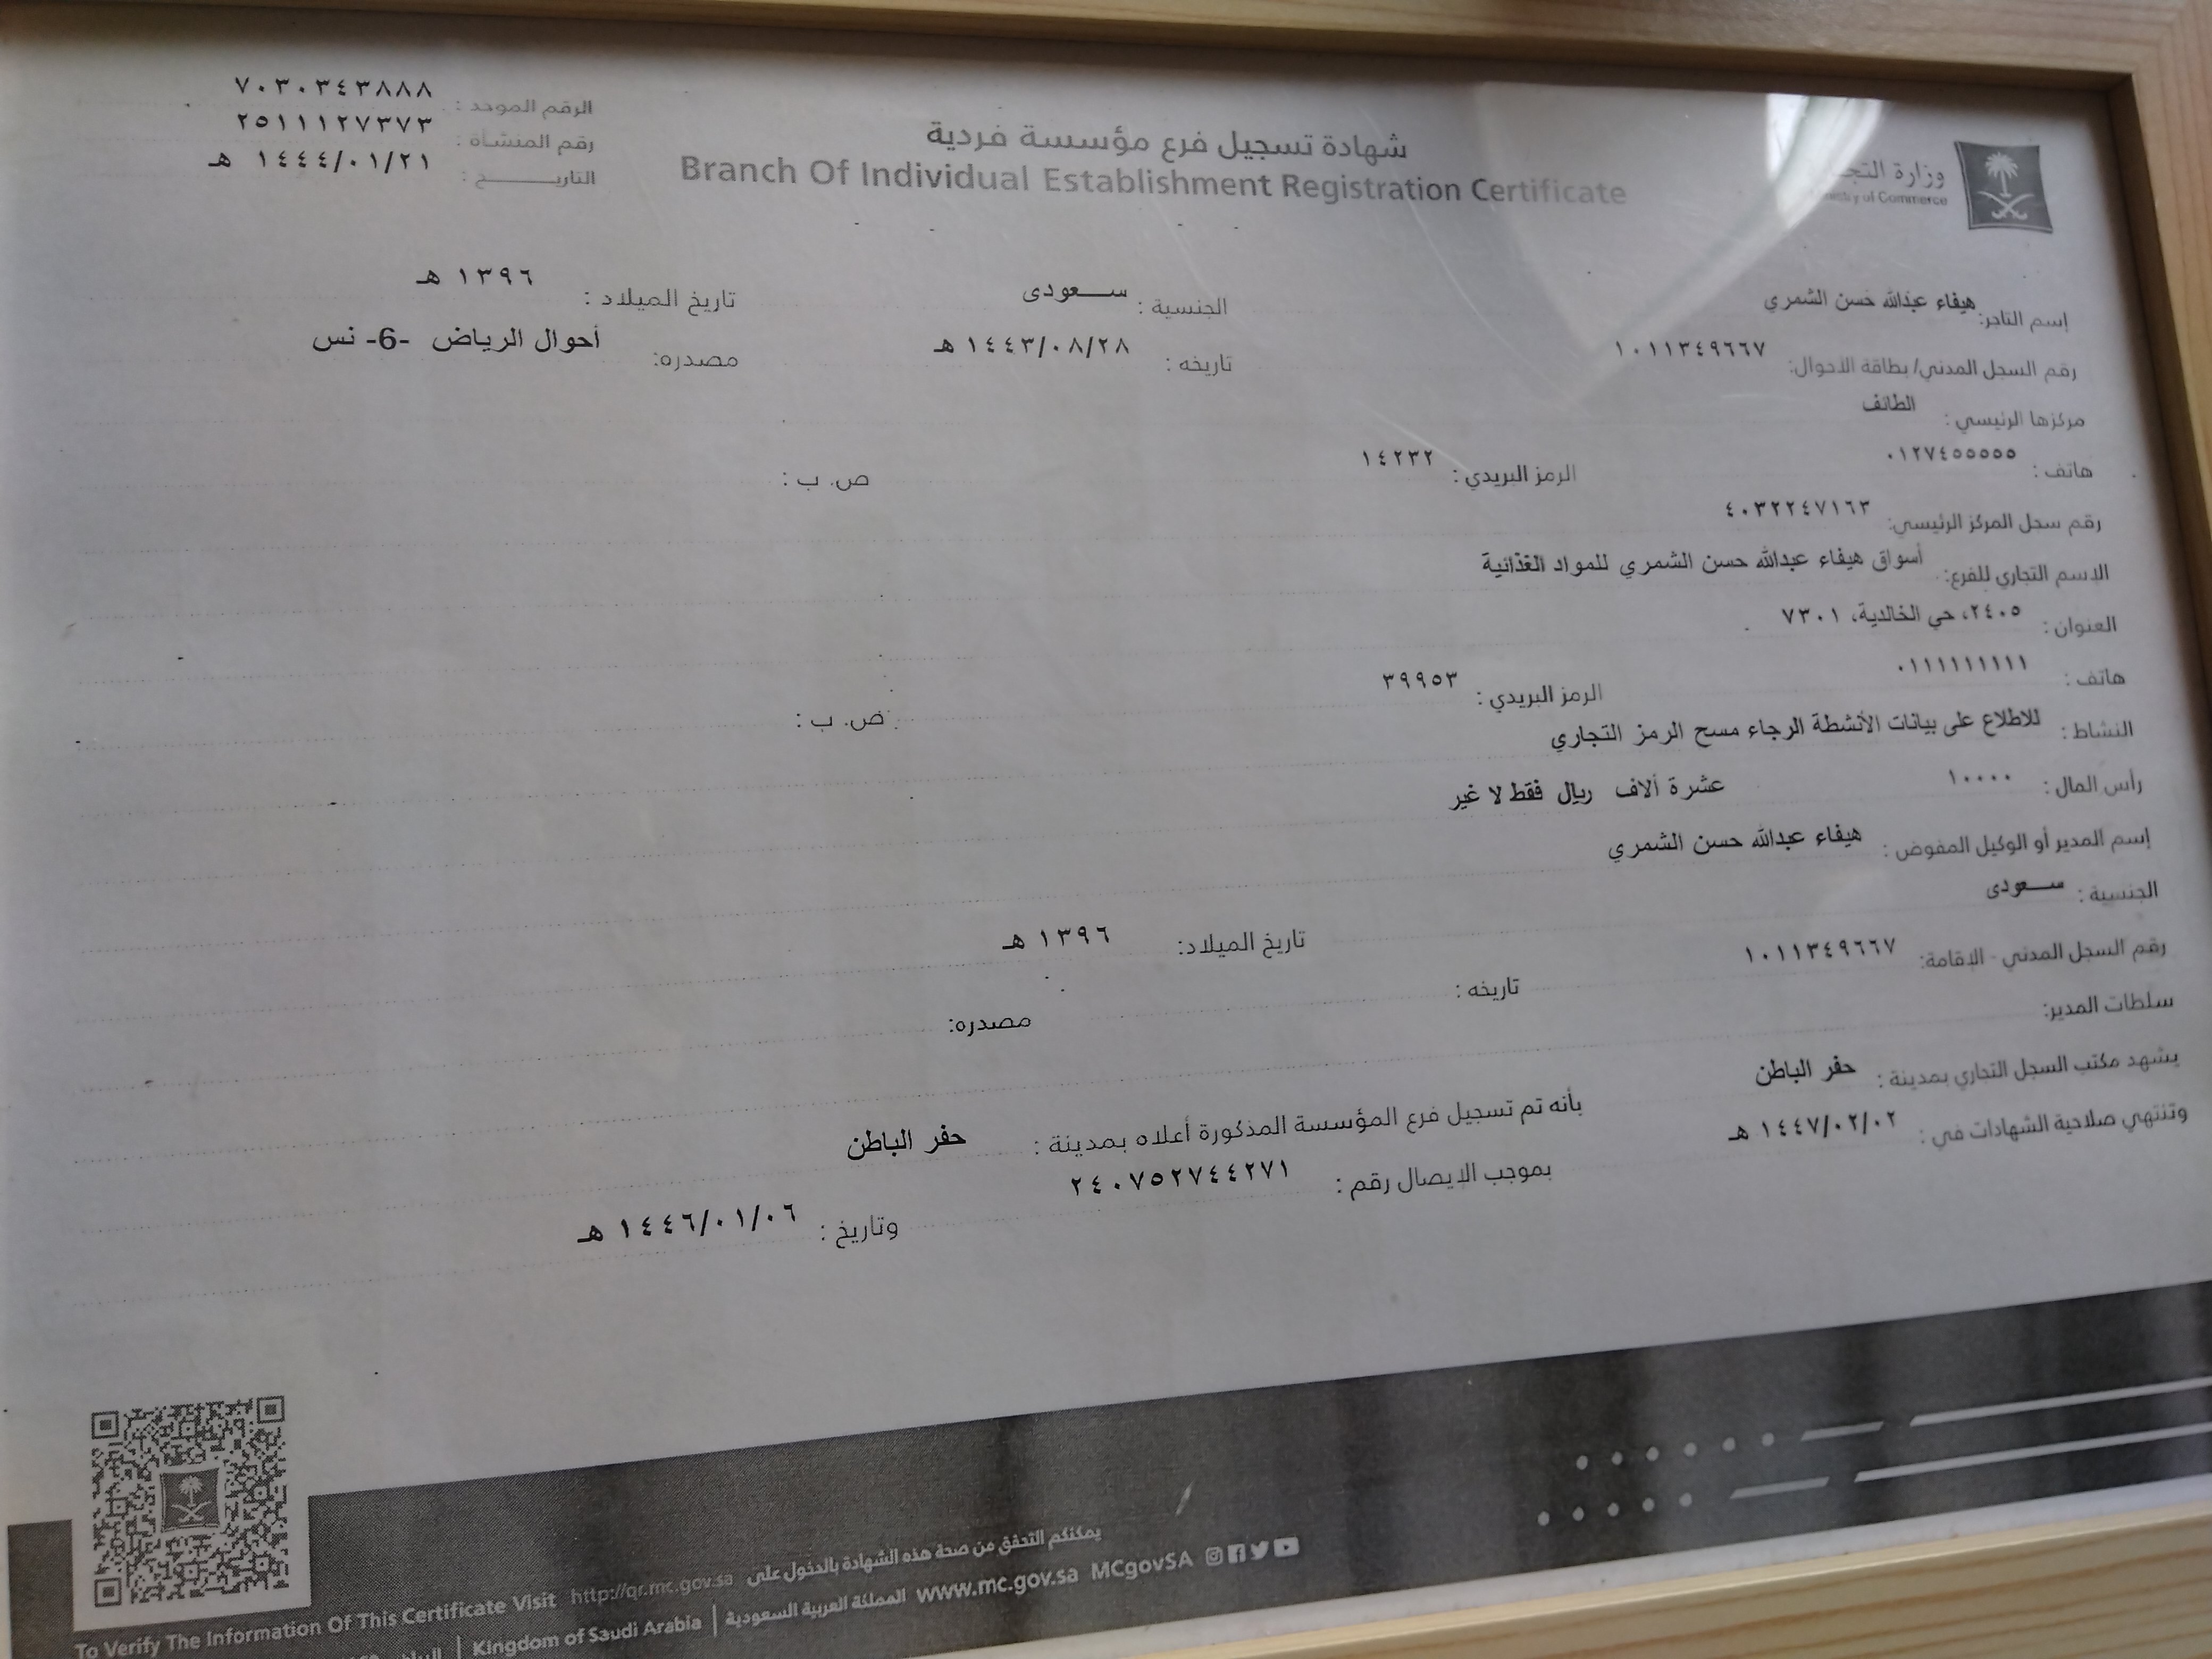 وزارة
Ministry of Commerce
شهادة تسجيل فرع مؤسسة فردية
Branch Of Individual Establishment Registration Certificate
الرقم الموحد : ٧٠٣٠٣٤٣٨٨٨
رقم المنشأة : ٢٥١١١٢٧٣٧٣
التاريـــــــخ : ١٤٤٤/٠١/٢١ هـ
إسم التاجر: هيفاء عبدالله حسن الشمري الجنسية : ســـعودى تاريخ الميلاد : ١٣٩٦ هـ
رقم السجل المدني/ بطاقة الأحوال: ١٠١١٣٤٩٦٦٧ تاريخه : ١٤٤٣/٠٨/٢٨ هـ مصدره: أحوال الرياض -6- نس
مركزها الرئيسي : الطائف
هاتف : ٠١٢٧٤٥٥٥٥٥ الرمز البريدي : ١٤٢٣٢ ص. ب :
رقم سجل المركز الرئيسي: ٤٠٣٢٢٤٧١٦٣
الاسم التجاري للفرع: أسواق هيفاء عبدالله حسن الشمري للمواد الغذائية
العنوان : ٢٤٠٥، حي الخالدية، ٧٣٠١
هاتف : ٠١١١١١١١١١ الرمز البريدي : ٣٩٩٥٣ ص. ب :
النشاط : للاطلاع على بيانات الأنشطة الرجاء مسح الرمز التجاري
رأس المال : ١٠٠٠٠ عشرة آلاف ريال فقط لا غير
إسم المدير أو الوكيل المفوض : هيفاء عبدالله حسن الشمري
الجنسية : ســـعودى
رقم السجل المدني - الإقامة: ١٠١١٣٤٩٦٦٧ تاريخ الميلاد: ١٣٩٦ هـ
سلطات المدير: تاريخه : مصدره:
يشهد مكتب السجل التجاري بمدينة : حفر الباطن بأنه تم تسجيل فرع المؤسسة المذكورة أعلاه بمدينة : حفر الباطن
وتنتهي صلاحية الشهادات في : ١٤٤٧/٠٢/٠٢ هـ بموجب الايصال رقم : ٢٤٠٧٥٢٧٤٤٢٧١ وتاريخ : ١٤٤٦/٠١/٠٦ هـ
يمكنكم التحقق من صحة هذه الشهادة بالدخول على
To Verify The Information Of This Certificate Visit http://qr.mc.gov.sa
Kingdom of Saudi Arabia | المملكة العربية السعودية www.mc.gov.sa MCgovSA